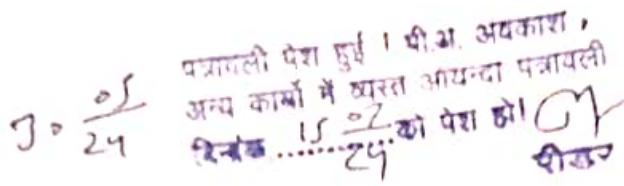 30 05/24 पत्रावली पेश हुई । पी.अ. अवकाश,
अन्य कार्यो में व्यस्त आयन्दा पत्रावली
दिनांक 15 02/24 को पेश हो।